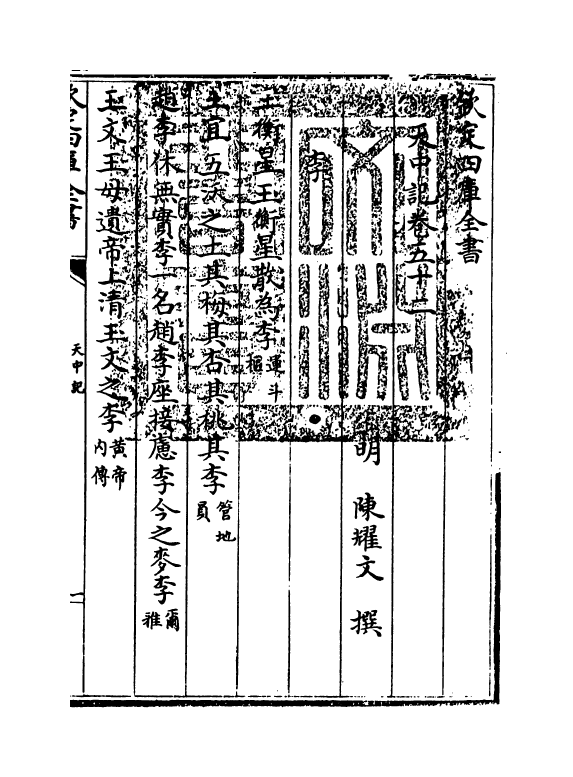 欽定四庫全書
天中記卷五十二
明 陳耀文 撰
李
玉衡星 玉衡星散為李 運斗樞
土宜 五沃之土其梅其杏其桃其李 管地員
趙李 休無實李一名趙李座接慮李今之麥李 爾雅
玉文 王母遺帝上清玉文之李 黄帝內傳
天中記